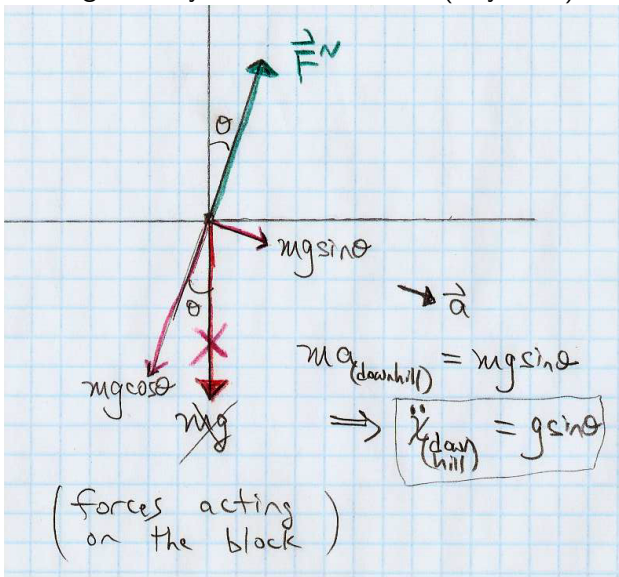 F⃗ᴺ
θ
mg sinθ
θ
a⃗
mg cosθ
mg
ma(downhill) = mg sinθ
⇒ ẍ(down hill) = g sinθ
(forces acting
on the block)